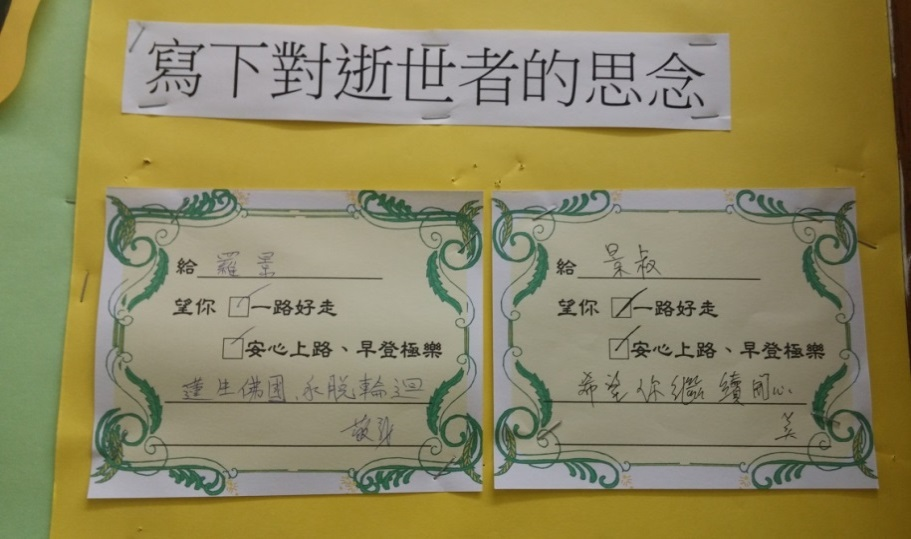 寫下對逝世者的思念
給 羅景
望你 ☑一路好走
☑安心上路、早登極樂
蓮生佛國、永脫輪迴
給 景叔
望你 ☑一路好走
☑安心上路、早登極樂
希望你繼續開心